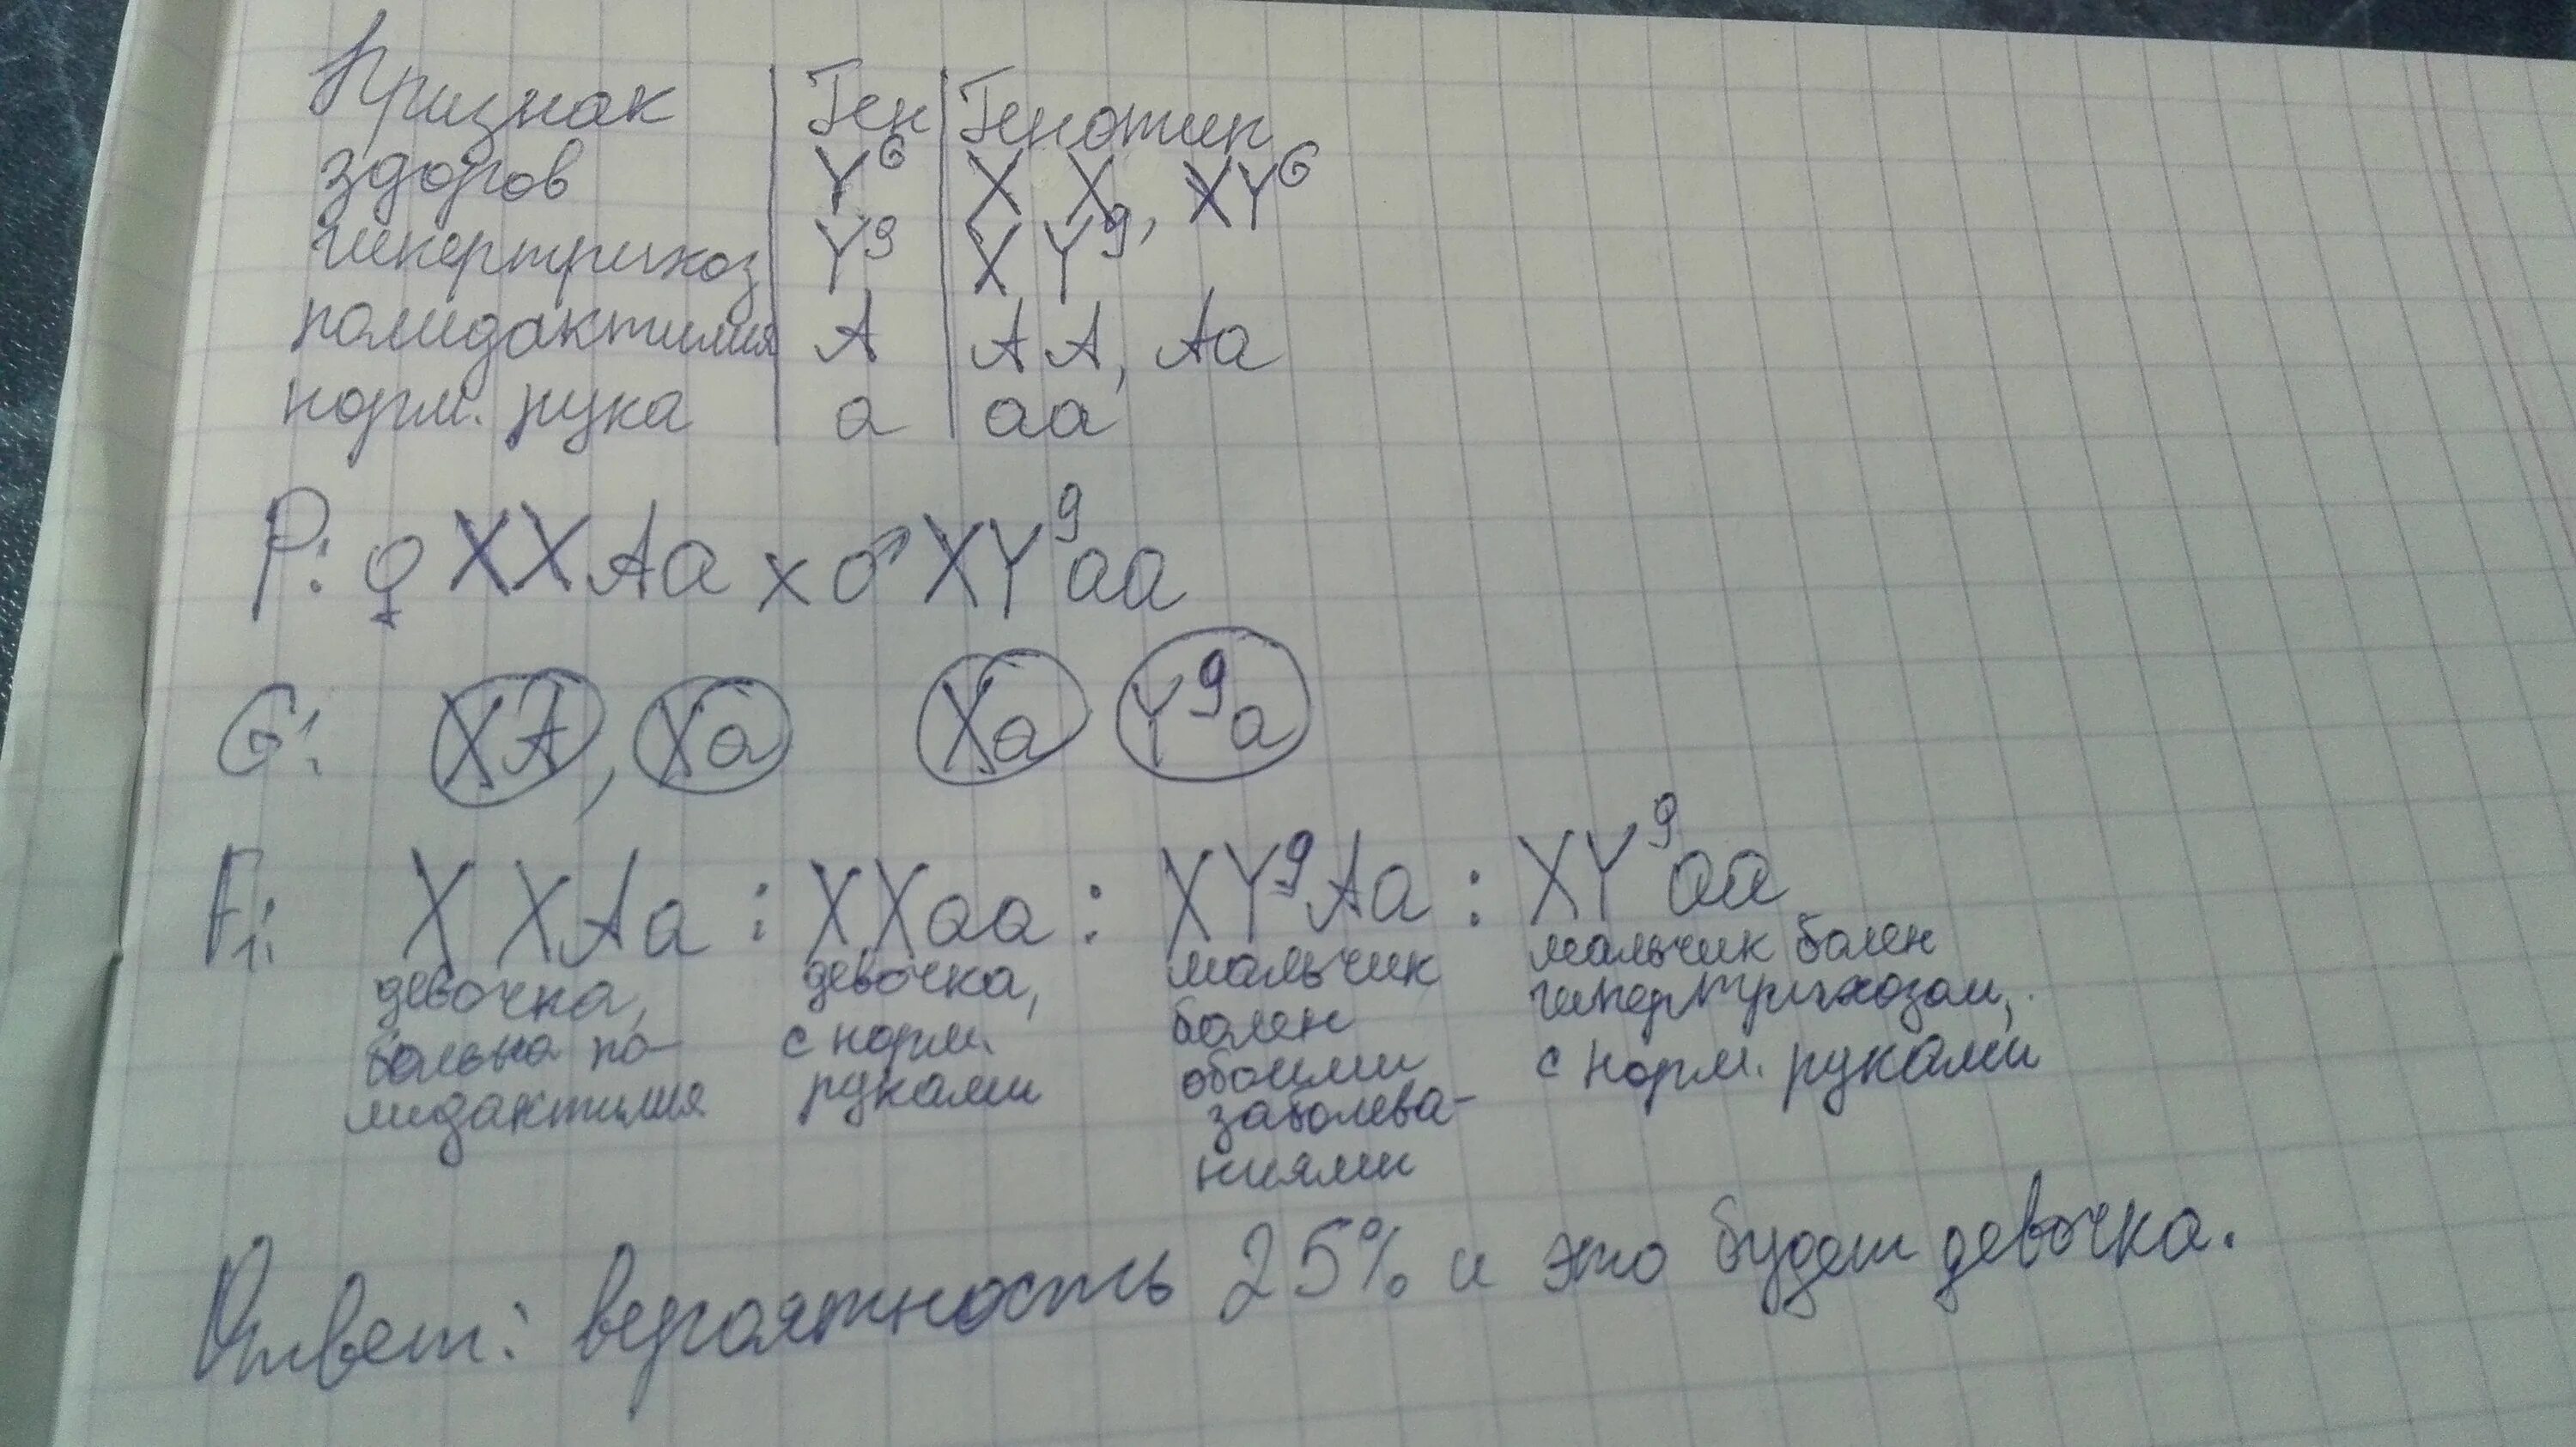 Признак | Ген | Генотип
здоров | Y^G | X X, XY^G
гипертрихоз | Y^g | X Y^g
полидактилия | A | AA, Aa
норм. рука | a | aa
P: ♀ XXAa x ♂ XY^g aa
G: XA, Xa Xa Y^g a
F1: XXAa : XXaa : XY^g Aa : XY^g aa
девочка, больна полидактилия
девочка, с норм. руками
мальчик болен обоими заболеваниями
мальчик болен гипертрихозом, с норм. руками
Ответ: вероятность 25% и это будет девочка.